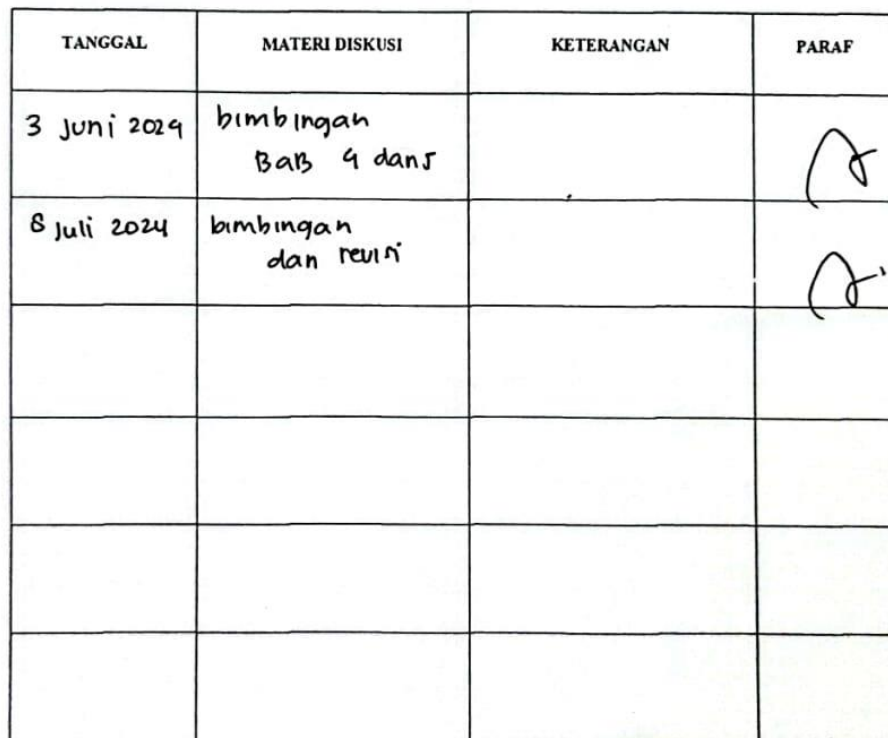 TANGGAL MATERI DISKUSI KETERANGAN PARAF
3 Juni 2024 bimbingan
BAB 4 dan 5
8 Juli 2024 bimbingan
dan revisi